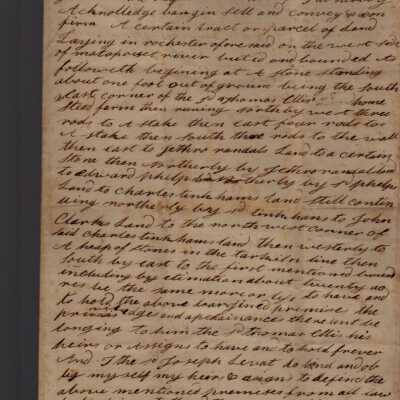 Acknolledge bargin sell and convey & con
firm A certain tract or parcel of Land
Laying in rochester aforesaid on the west side
of matapoiset river buted and bounded as
followeth begining at A stone standing
about one foot out of ground being the south
East corner of the sd thomas Ellis home
sted ferm then runing northerly west three
rods to A stake then East four rods to
A stake then south three rods to the wall
then east to Jethro randals Land to a certain
stone then northerly by Jethro randal land
to Edward phelps northerly by sd phelps
Land to Charles tinkhams land still contin
uing northerly by sd tinkhams to John
Clarks Land to the northwest corner of
said Charles tinkhams land then westerly to
A heap of stones in the line then
south by east to the first mentiond bound
including by estimation about twenty ac
res be the same more or less to have and
to hold the above bargined premise the
priviledge and apurtainances there unto be
longing to him the sd thomas Ellis his
heirs or Asigns to have and to hold frever
And I the sd Joseph Levat do bind and ob
lig my self my heirs & asigns to defind the
above mentioned premises from all law